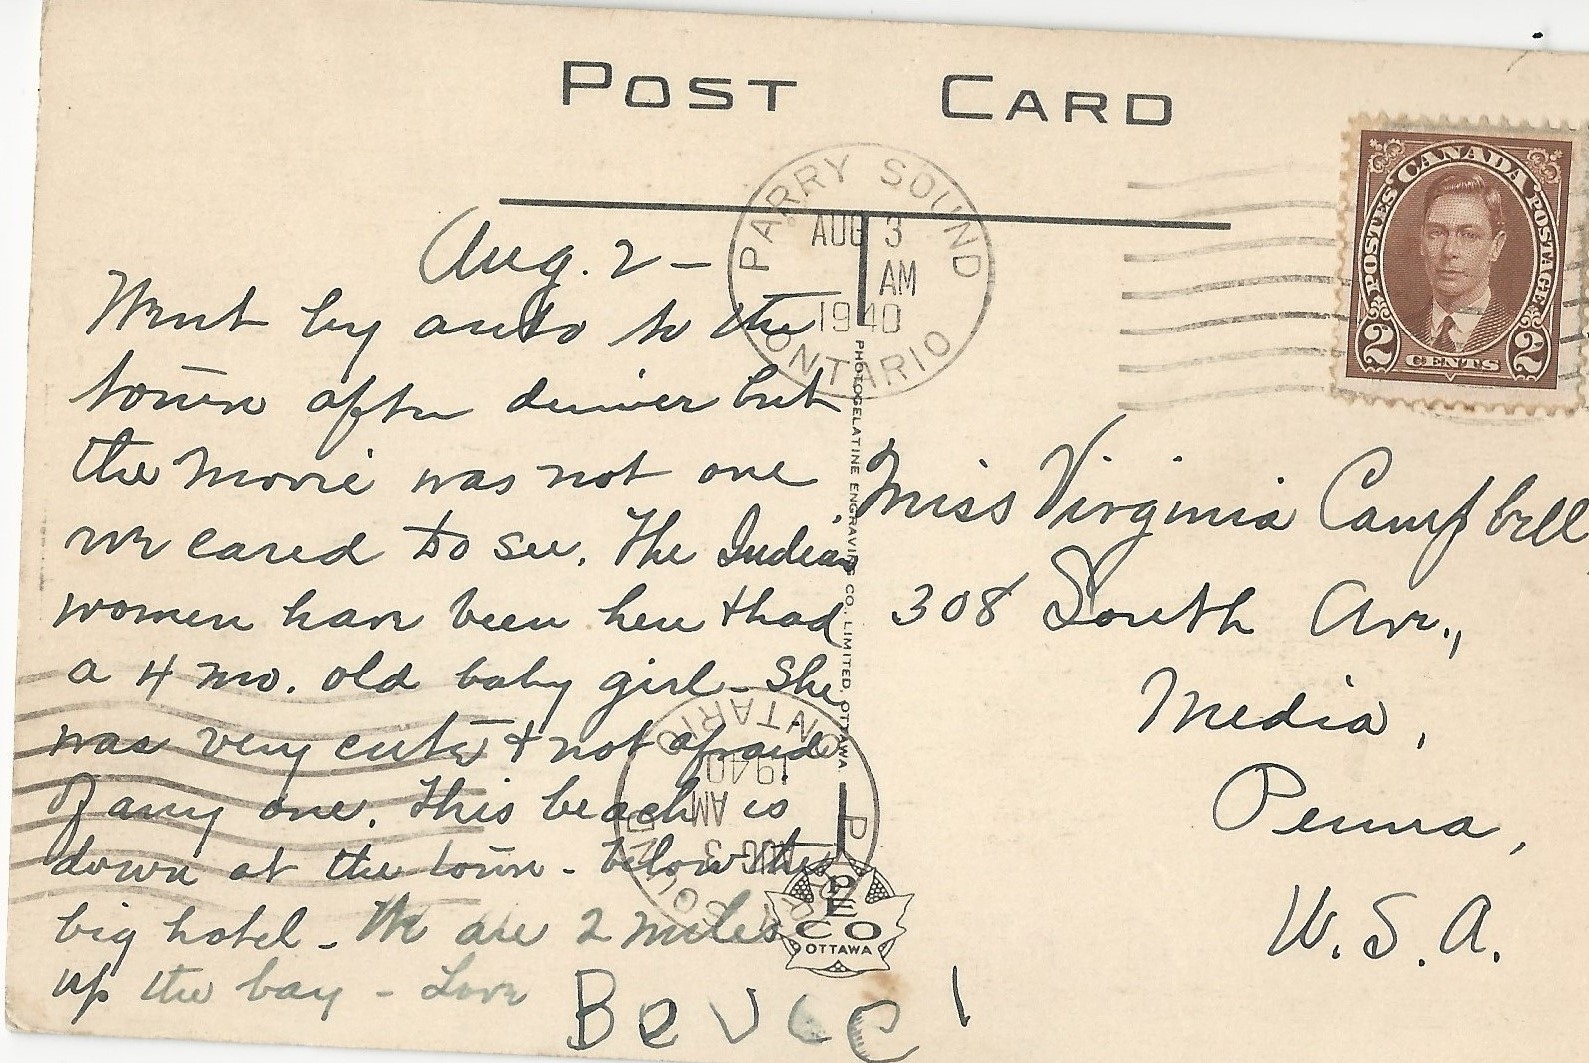 POST CARD
PARRY SOUND
AUG 3
AM
1940
ONTARIO
CANADA
POSTES POSTAGE
2 CENTS 2
Aug. 2 –
Went by auto to the
town after dinner but
the movie was not one
we cared to see. The Indian
women have been here & had
a 4 mo. old baby girl – She
was very cute & not afraid
of any one. This beach is
down at the town – below the
big hotel – We are 2 miles
up the bay – Love
PHOTOGELATINE ENGRAVING CO., LIMITED, OTTAWA.
Miss Virginia Campbell
308 South Ave.,
Media,
Penna,
U.S.A.
ONTARIO
1940
AM
AUG 3
PARRY SOUND
PE
CO
OTTAWA